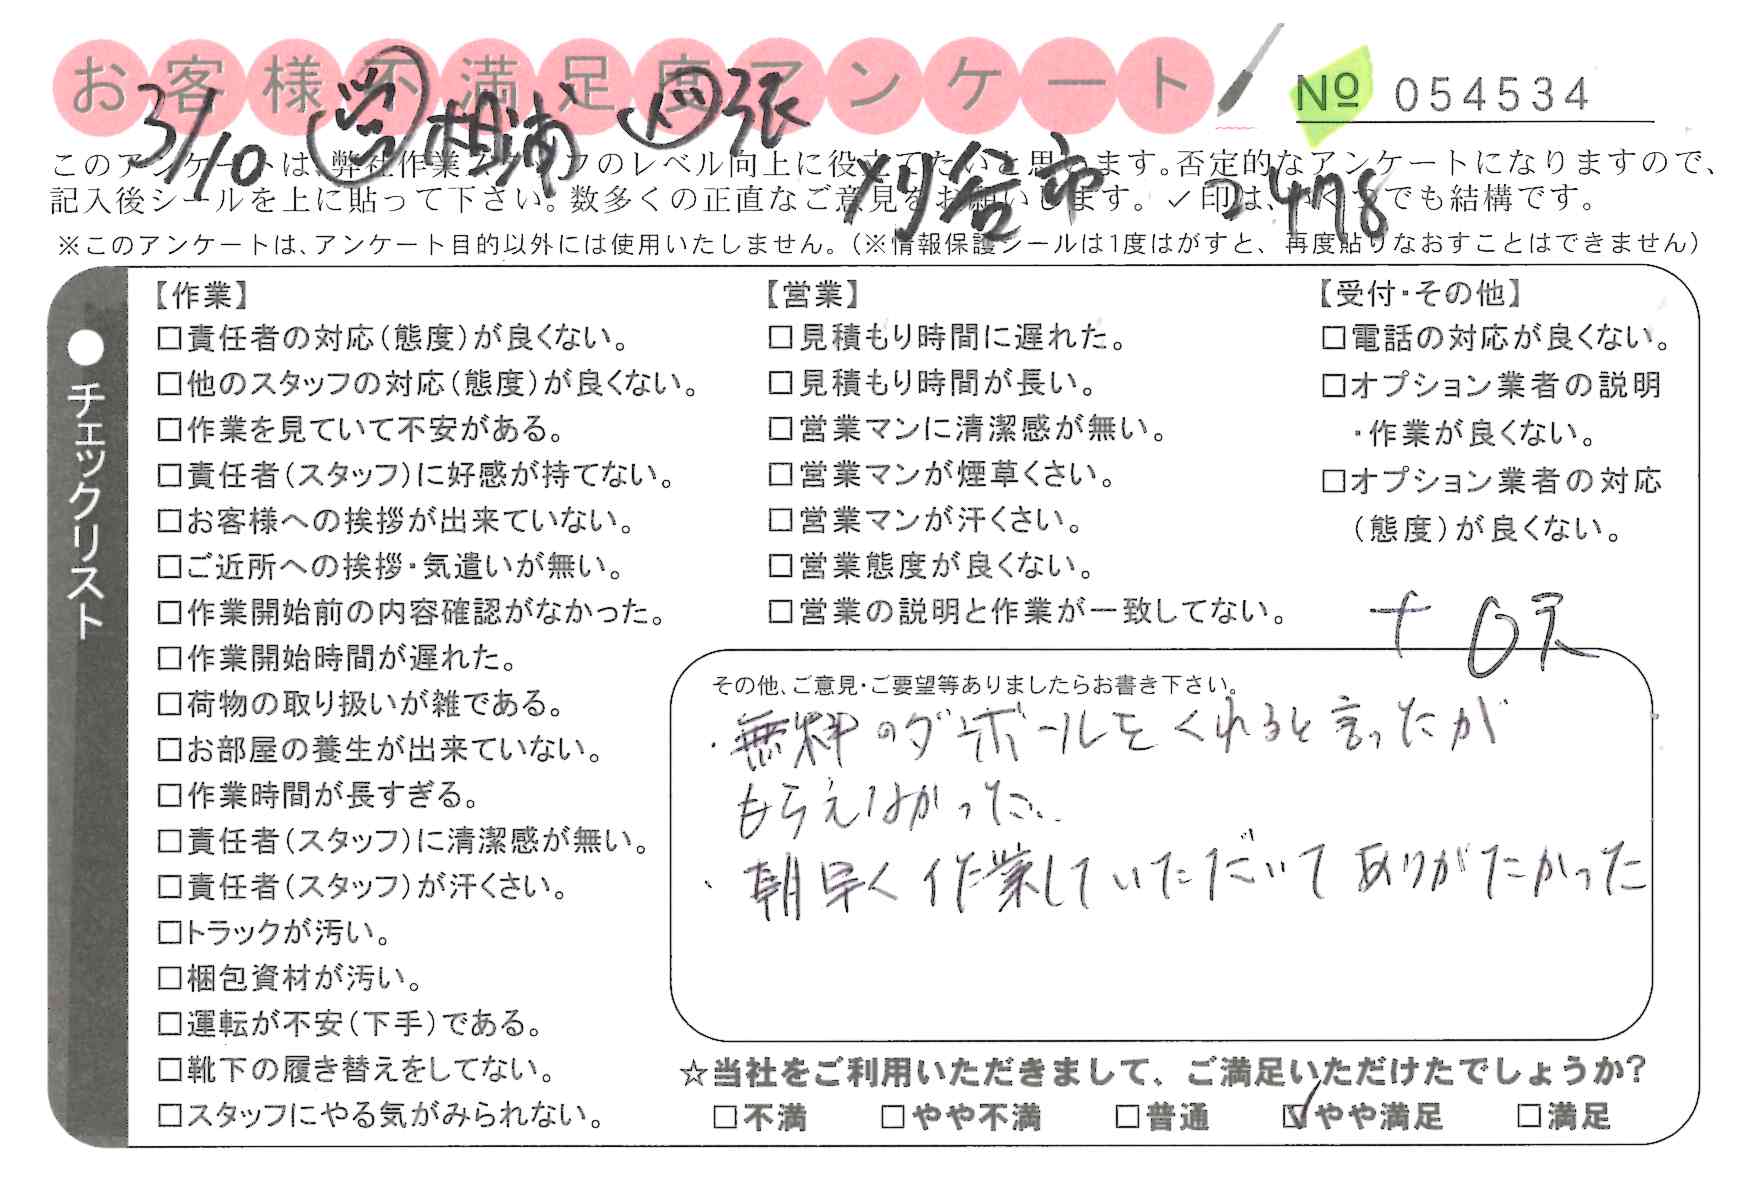 お客様不満足度アンケート
№ 054534
3/10 営 相浦 張
このアンケートは、弊社作業スタッフのレベル向上に役立てたいと思います。否定的なアンケートになりますので、
刈谷市 2478
記入後シールを上に貼って下さい。数多くの正直なご意見をお願いします。✓印は、いくつでも結構です。
※このアンケートは、アンケート目的以外には使用いたしません。(※情報保護シールは1度はがすと、再度貼りなおすことはできません)
●チェックリスト
【作業】
□責任者の対応(態度)が良くない。
□他のスタッフの対応(態度)が良くない。
□作業を見ていて不安がある。
□責任者(スタッフ)に好感が持てない。
□お客様への挨拶が出来ていない。
□ご近所への挨拶・気遣いが無い。
□作業開始前の内容確認がなかった。
□作業開始時間が遅れた。
□荷物の取り扱いが雑である。
□お部屋の養生が出来ていない。
□作業時間が長すぎる。
□責任者(スタッフ)に清潔感が無い。
□責任者(スタッフ)が汗くさい。
□トラックが汚い。
□梱包資材が汚い。
□運転が不安(下手)である。
□靴下の履き替えをしてない。
□スタッフにやる気がみられない。
【営業】
□見積もり時間に遅れた。
□見積もり時間が長い。
□営業マンに清潔感が無い。
□営業マンが煙草くさい。
□営業マンが汗くさい。
□営業態度が良くない。
□営業の説明と作業が一致してない。
【受付・その他】
□電話の対応が良くない。
□オプション業者の説明
・作業が良くない。
□オプション業者の対応
(態度)が良くない。
その他、ご意見・ご要望等ありましたらお書き下さい。
・無料のダンボールをくれると言ったが
もらえなかった…
・朝早く作業していただいてありがたかった
☆当社をご利用いただきまして、ご満足いただけたでしょうか?
□不満 □やや不満 □普通 ☑やや満足 □満足